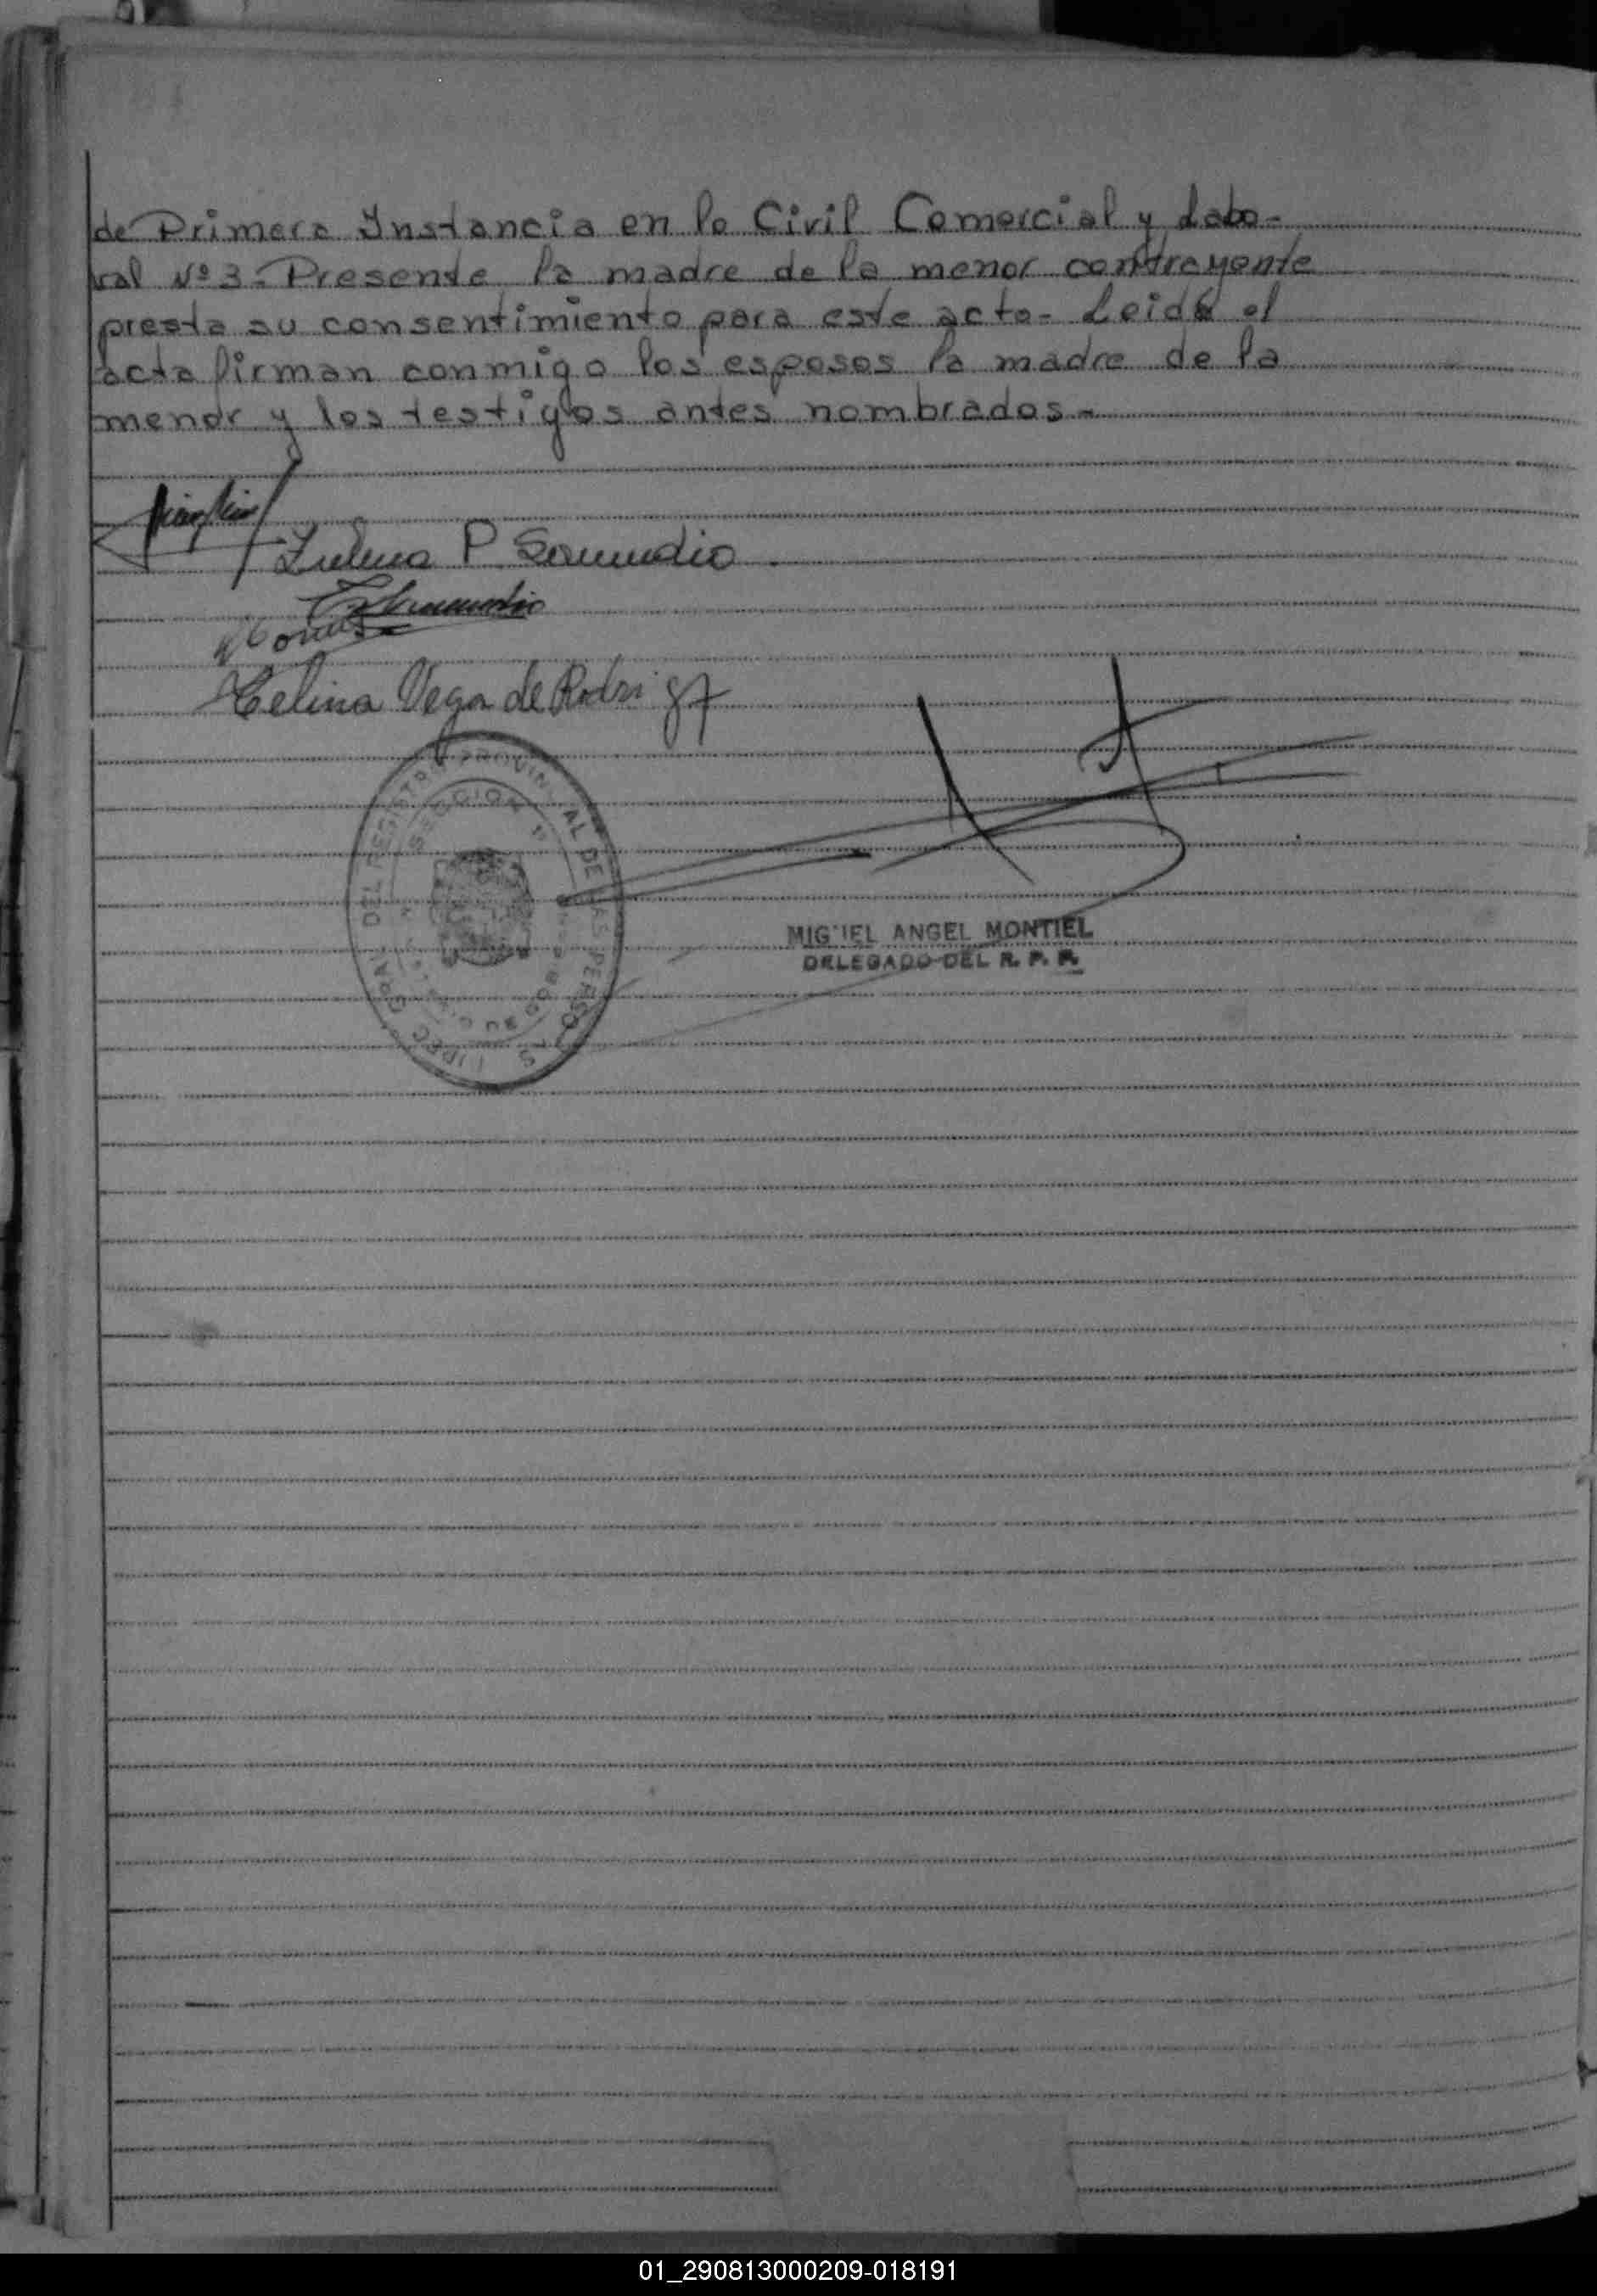 de Primera Instancia en lo Civil Comercial y Labo-
ral Nº 3.- Presente la madre de la menor contrayente
presta su consentimiento para este acto- Leida el
acta firman conmigo los esposos la madre de la
menor y los testigos antes nombrados-
Zulma P Samudio
Celina Vega de
PROVINCIAL DE LAS PERSONAS
SECCION 1º
MIGUEL ANGEL MONTIEL
DELEGADO DEL R. P. P.
01_290813000209-018191